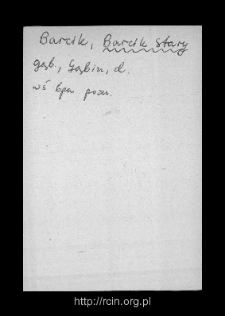 Barcik, Barcik Stary
gąb., Gąbin, d.
wś bpa pozn.
http://rcin.org.pl